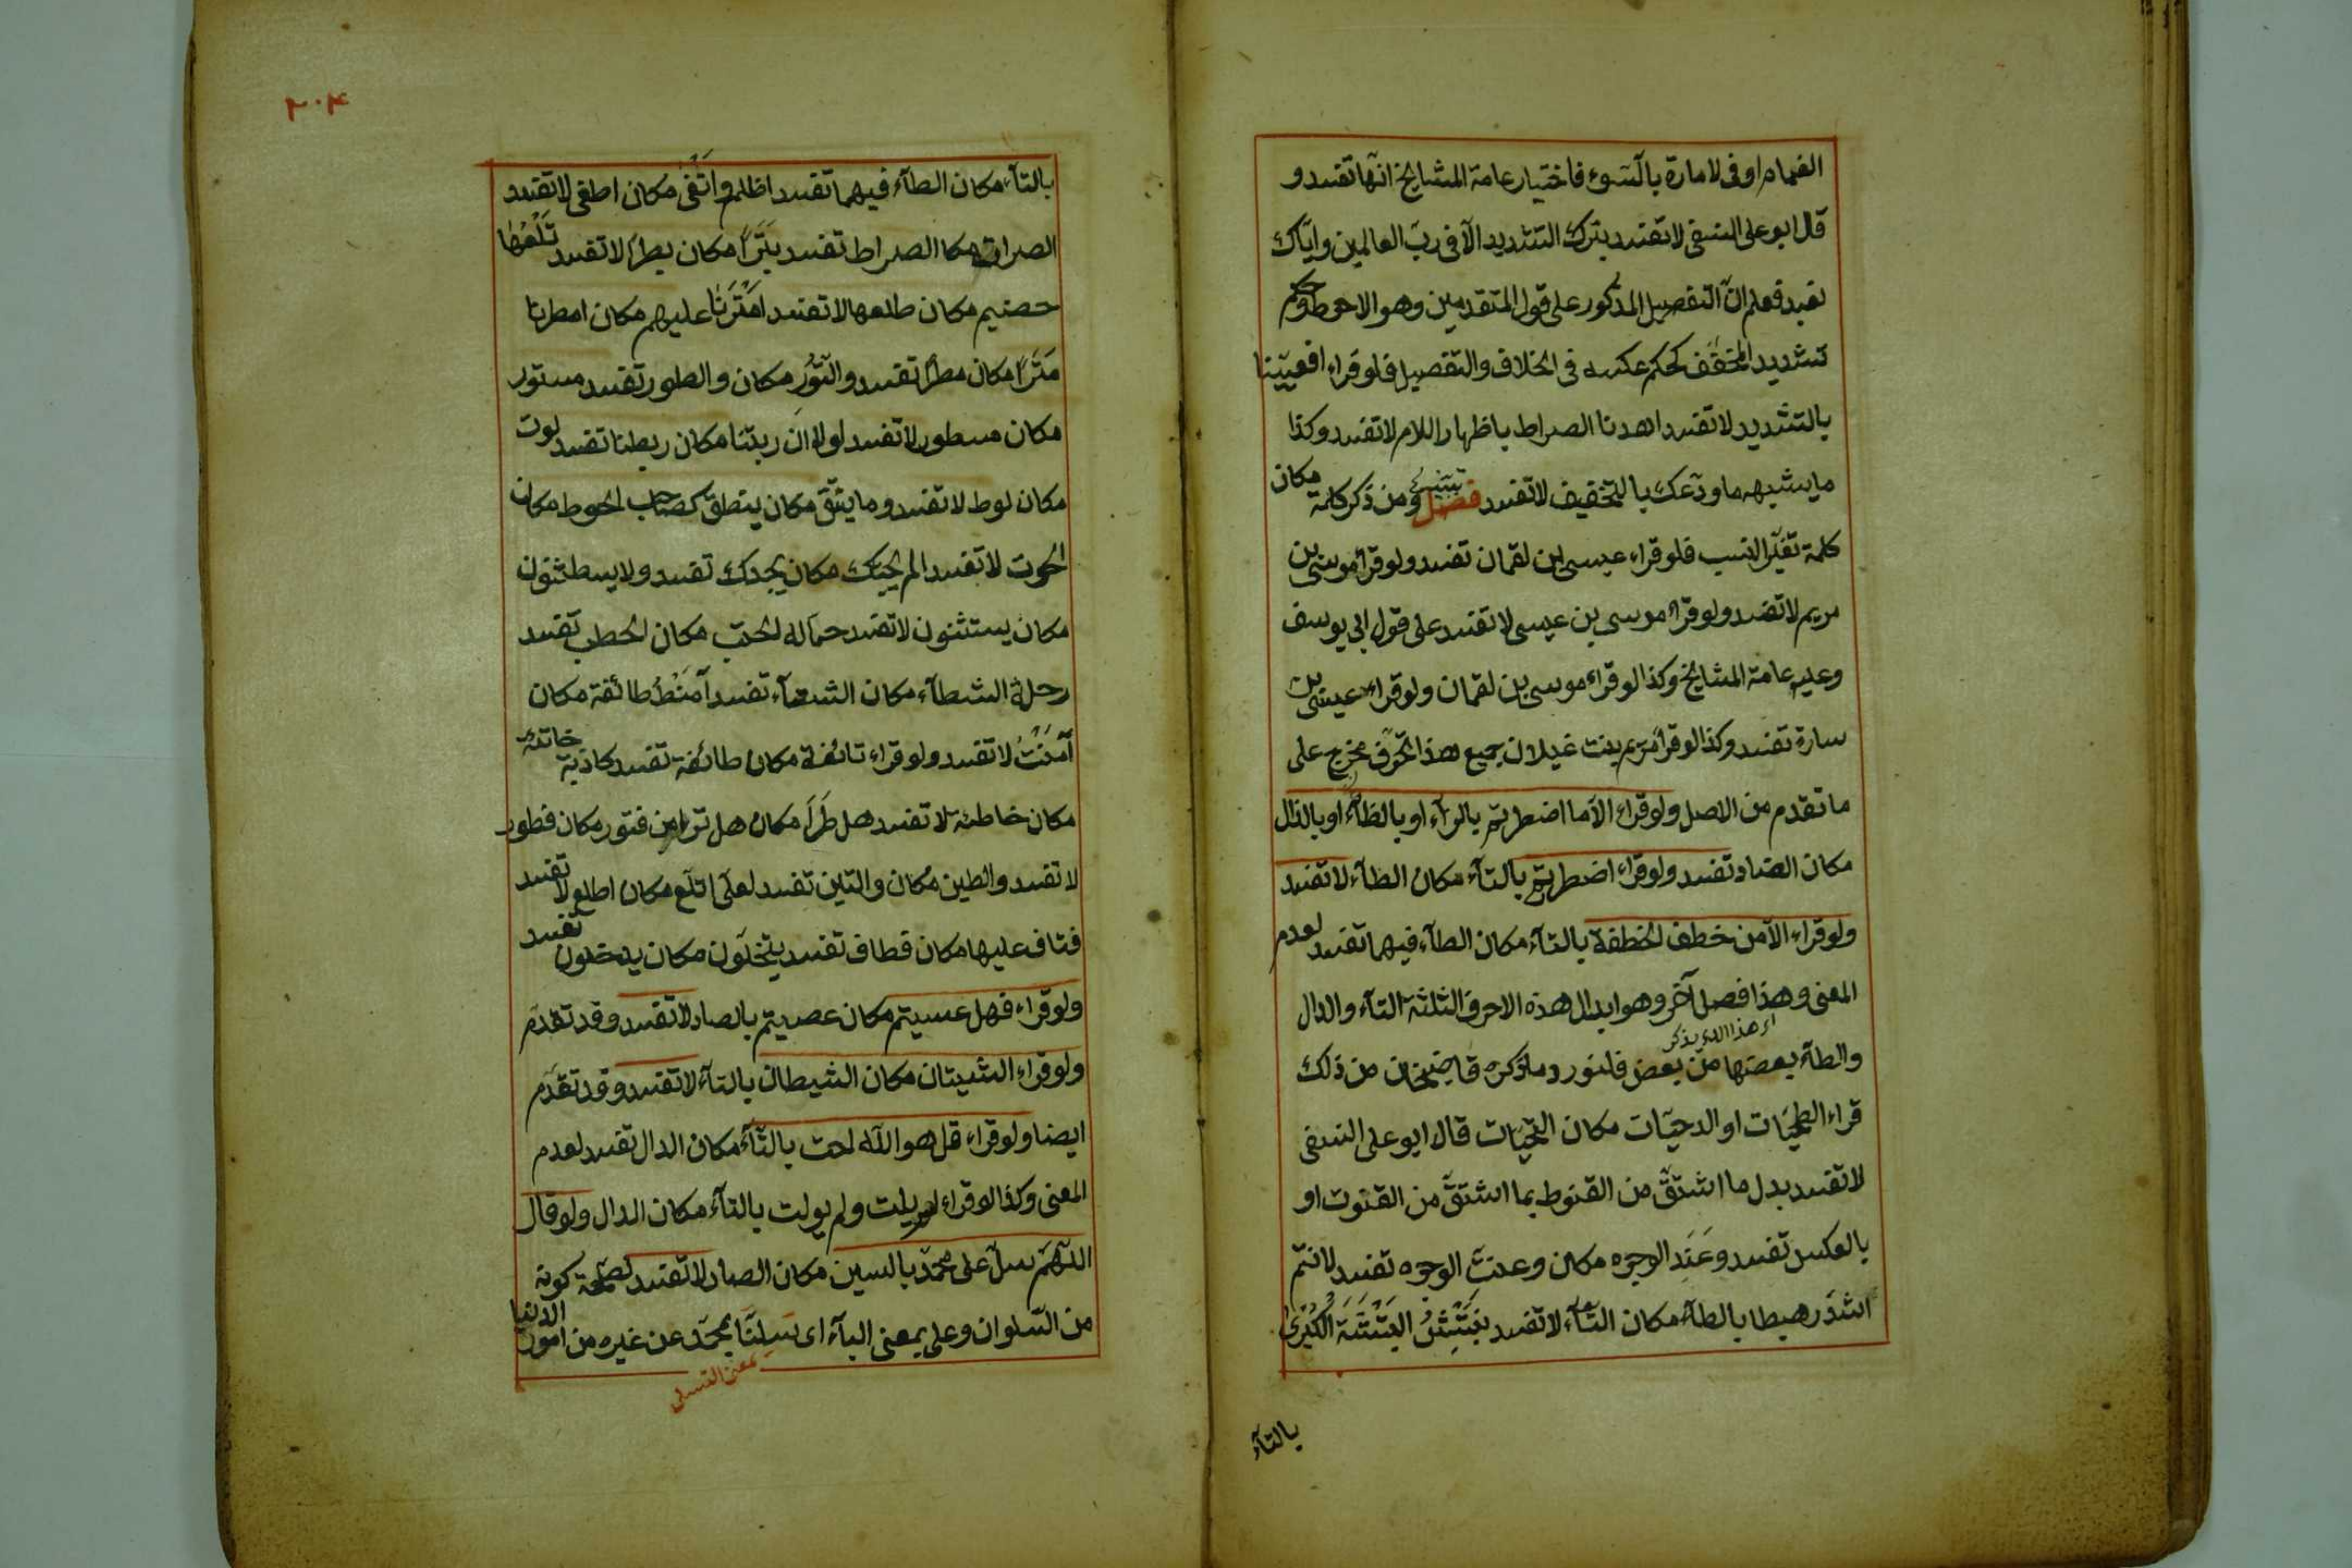 الغمام او فى لامارة بالسّوء فاختيار عامة المشايخ انها تفسد و
قال ابو على النسفى لا تفسد بترك التشديد الّا فى ربّ العالمين وايّاك
نعبد فعلم انّ التفصيل المذكور على قول المتقدمين وهو الاحوط وحكم
تشديد المخفّف كحكم عكسه فى الخلاف والتفصيل فلو قراء افعيّينا
بالتشديد لا تفسد اهدنا الصراط باظهار اللام لا تفسد وكذا
ما يشبهه ما ودعك بالتخفيف لا تفسد فصل ومن ذكر كلمة مكان
كلمة تغيّر النسب فلو قراء عيسى ابن لقمان تفسد ولو قرأ موسى بن
مريم لا تفسد ولو قرأ موسى بن عيسى لا تفسد على قول ابى يوسف
وعليه عامة المشايخ وكذا لو قراء موسى بن لقمان ولو قراء عيسى بن
سارة تفسد وكذا لو قرأ مريم بنت غيلان جميع هذا الحروف مخرج على
ما تقدم من الاصل ولو قراء الّا ما اضطررتم بالراء او بالظاء او بالذال
مكان الضاد تفسد ولو قراء اضطررتم بالتآء مكان الطآء لا تفسد
ولو قراء الّا من خطف الخطفة بالتآء مكان الطآء فيهما تفسد لعدم
المعنى وهذا فصل آخر وهو ابدال هذه الاحرف الثلثة التآء والدال
اى هذا الذى يذكر
والطآء بعضها من بعض فلنورد ما ذكره قاضيخان من ذلك
قراء الطحيّات او الدحيّات مكان التحيّات قال ابو على النسفى
لا تفسد بدل ما اشتقّ من القنوط بما اشتقّ من القنوت او
بالعكس تفسد وعَنَد الوجوه مكان وعنت الوجوه تفسد لانتم
اشدّ رهبطا بالطآء مكان التآء لا تفسد نبتش البتشة الكبرى
بالتآء
٢٠٤
بالتآء مكان الطآء فيهما تفسد اظلم واتغى مكان اطغى لا تفسد
الصرات مكان الصراط تفسد بَتَراً مكان بطراً لا تفسد تلعها
حضيم مكان طلعها لا تفسد امترنا عليهم مكان امطرنا
مَتَراً مكان مطراً تفسد والتور مكان والطور تفسد مستور
مكان مسطور لا تفسد لولا ان ربتنا مكان ربطنا تفسد لوت
مكان لوط لا تفسد وما ينتق مكان ينطق كصاحب الحوط مكان
الحوت لا تفسد الم يجتك مكان يجدك تفسد ولا يسطثنون
مكان يستثنون لا تفسد حمالة الحتب مكان الحطب تفسد
رحلة الشطآء مكان الشتآء تفسد آمنط طائفة مكان
آمنت لا تفسد ولو قراء تائفة مكان طائفة تفسد كاذبة خاتئة
مكان خاطئة لا تفسد هل طرا مكان هل ترا من فتور مكان فطور
لا تفسد والطين مكان والتين تفسد لعلى اتلع مكان اطلع لا تفسد
فتاف عليها مكان فطاف تفسد يتخلون مكان يدخلون تفسد
ولو قراء فهل عسيتم مكان عصيتم بالصاد لا تفسد وقد تقدم
ولو قراء الشيتان مكان الشيطان بالتآء لا تفسد وقد تقدم
ايضا ولو قراء قل هو الله احت بالتآء مكان الدال تفسد لعدم
المعنى وكذا لو قراء لم يلت ولم يولت بالتآء مكان الدال ولو قال
اللهم سلّ على محمّد بالسين مكان الصاد لا تفسد لصحة كونه
من السلوان وعلى بمعنى البآء اى تسلينا بمحمّد عن غيره من امور الدنيا
بمعنى التسلى